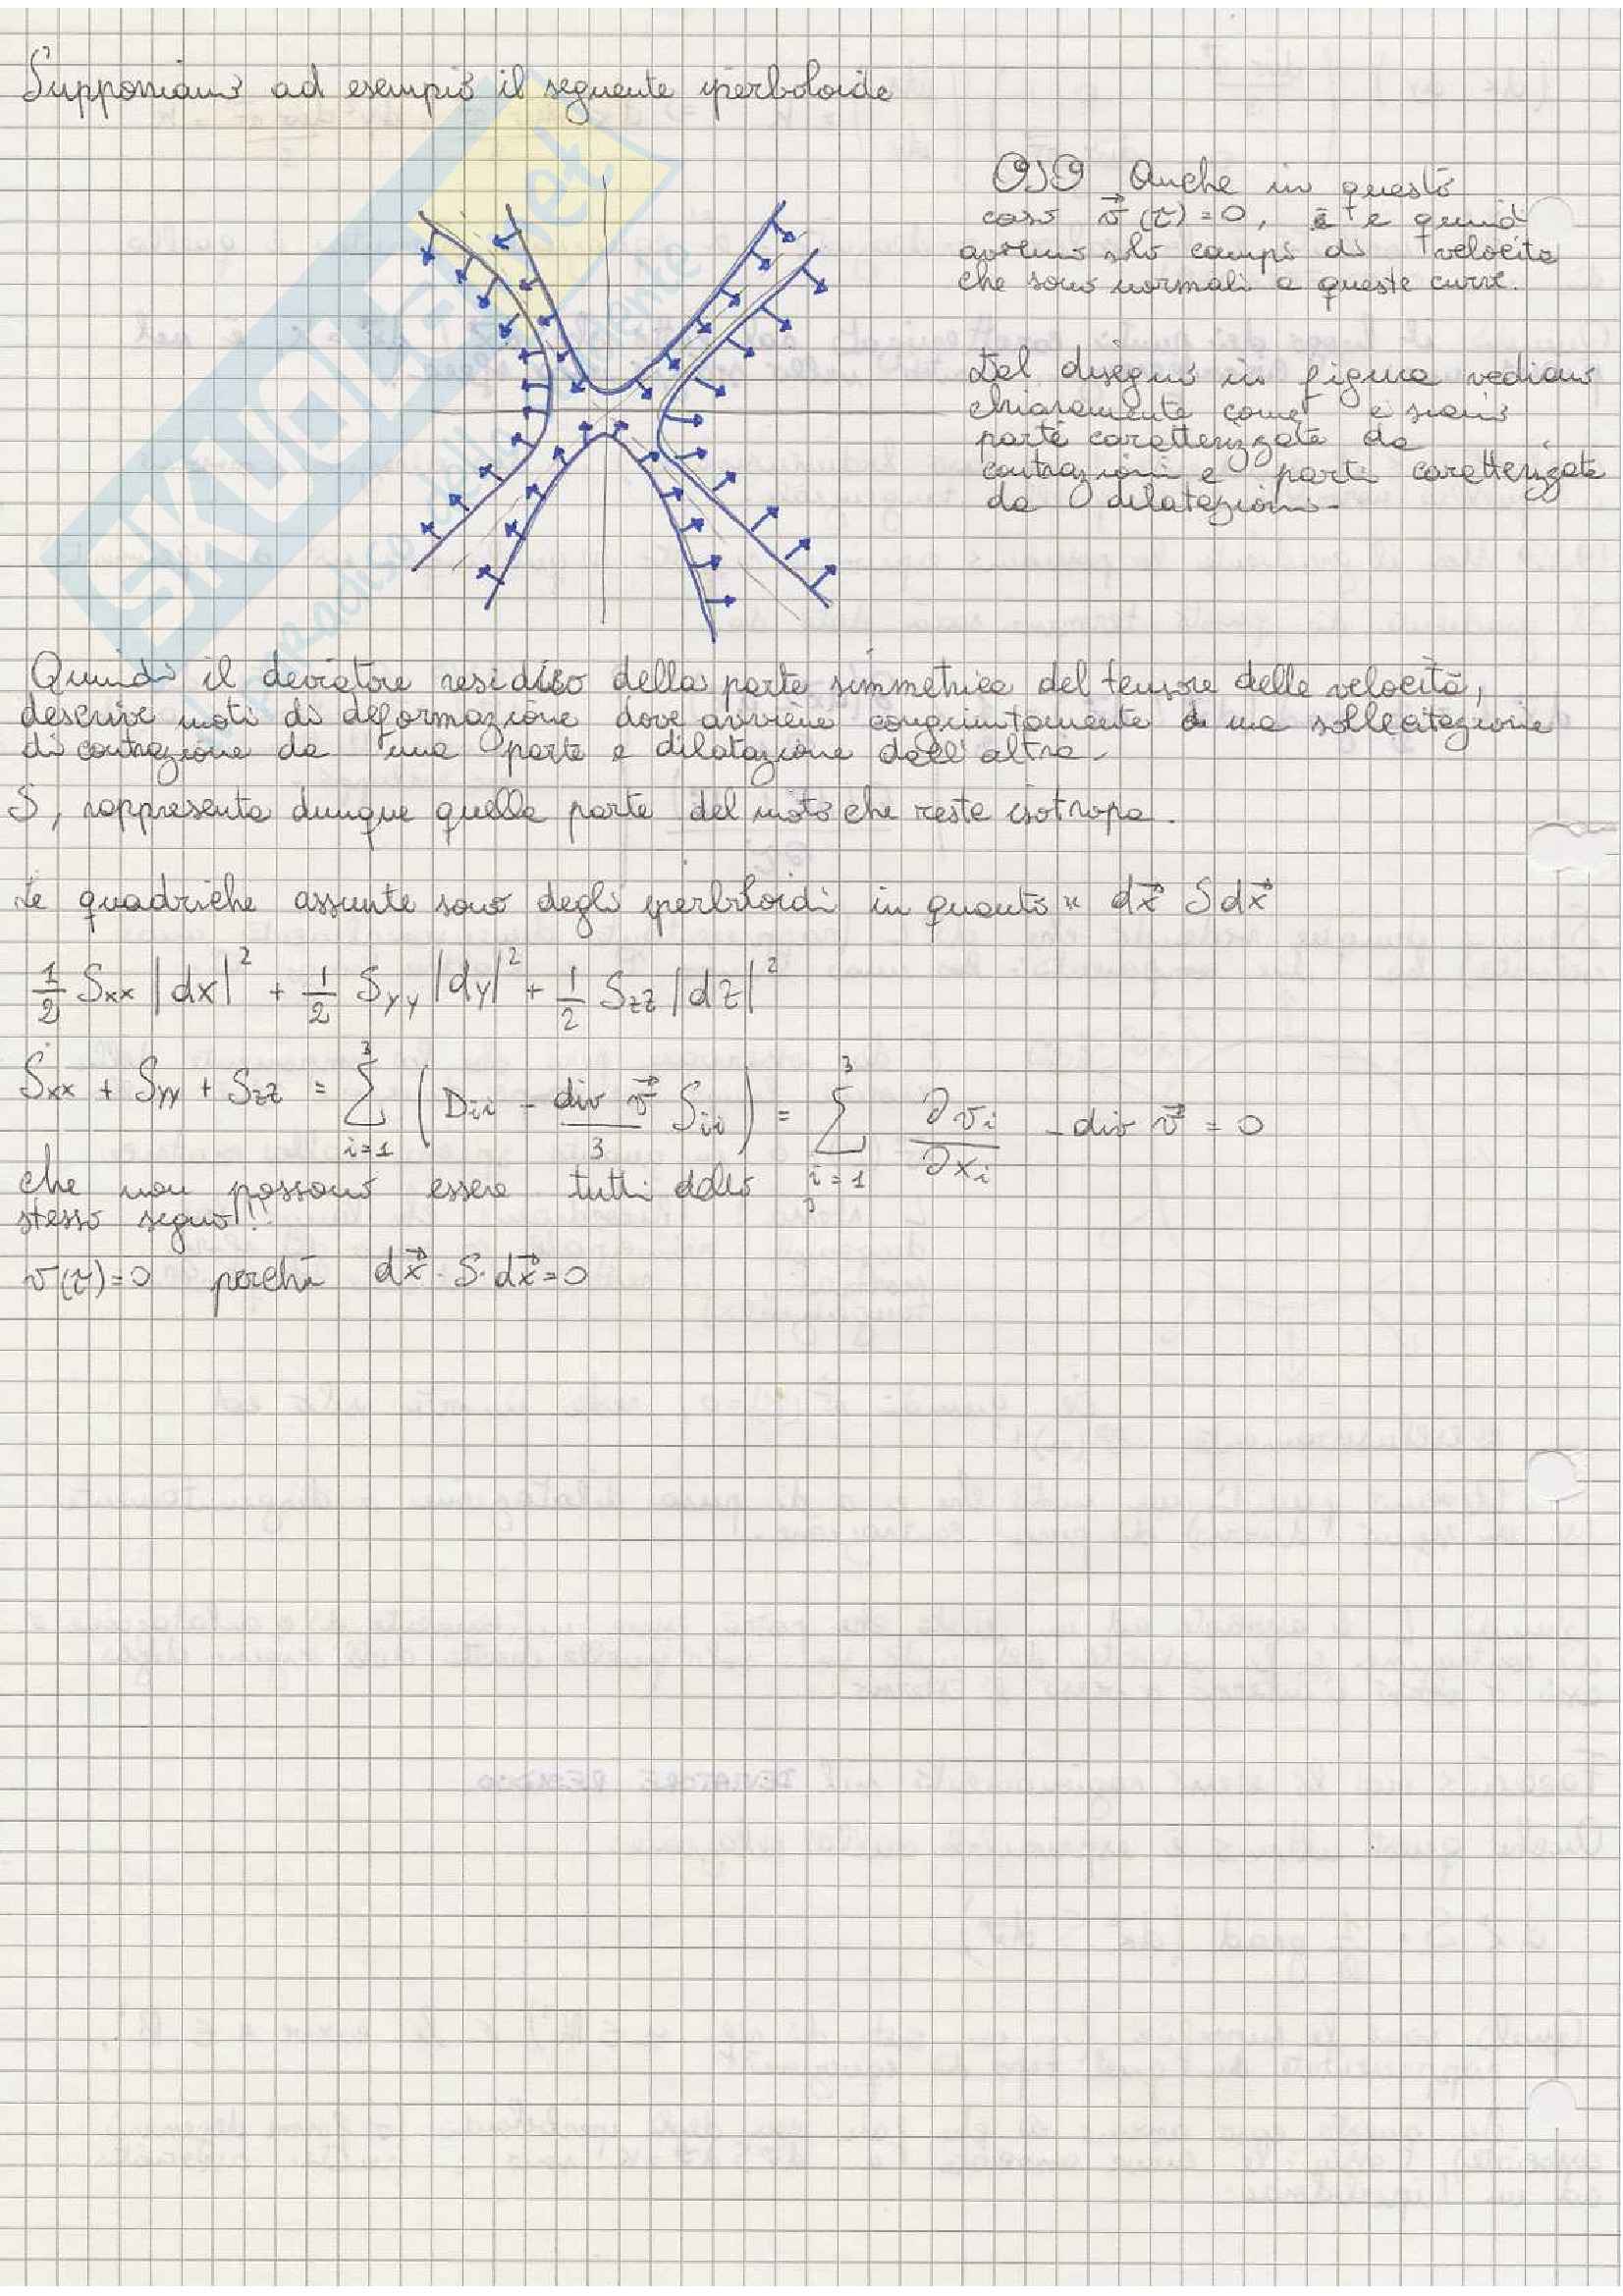 Supponiamo ad esempio il seguente iperboloide
OSS Anche in questo
caso v⃗(τ)=0, e quindi
avremo solo campi di velocità
che sono normali a queste curve.
Dal disegno in figura vediamo
chiaramente come ci siano
parti caratterizzate da
contrazioni e parti caratterizzate
da dilatazioni.
SKUOLA.net
Quindi il deviatore residuo della parte simmetrica del tensore delle velocità,
descrive moti di deformazione dove avviene congiuntamente una sollecitazione
di contrazione da una parte e dilatazione dall'altra.
S, rappresenta dunque quella parte del moto che resta isotropa.
Le quadriche assunte sono degli iperboloidi in quanto dx⃗ S dx⃗
1/2 Sxx |dx|² + 1/2 Syy |dy|² + 1/2 Szz |dz|²
Sxx + Syy + Szz = ∑_{i=1}^{3} (Dii - div v⃗/3 δii) = ∑_{i=1}^{3} ∂vi/∂xi - div v⃗ = 0
che non possono essere tutti dello
stesso segno!!
v(τ)=0 perché dx⃗ · S · dx⃗=0